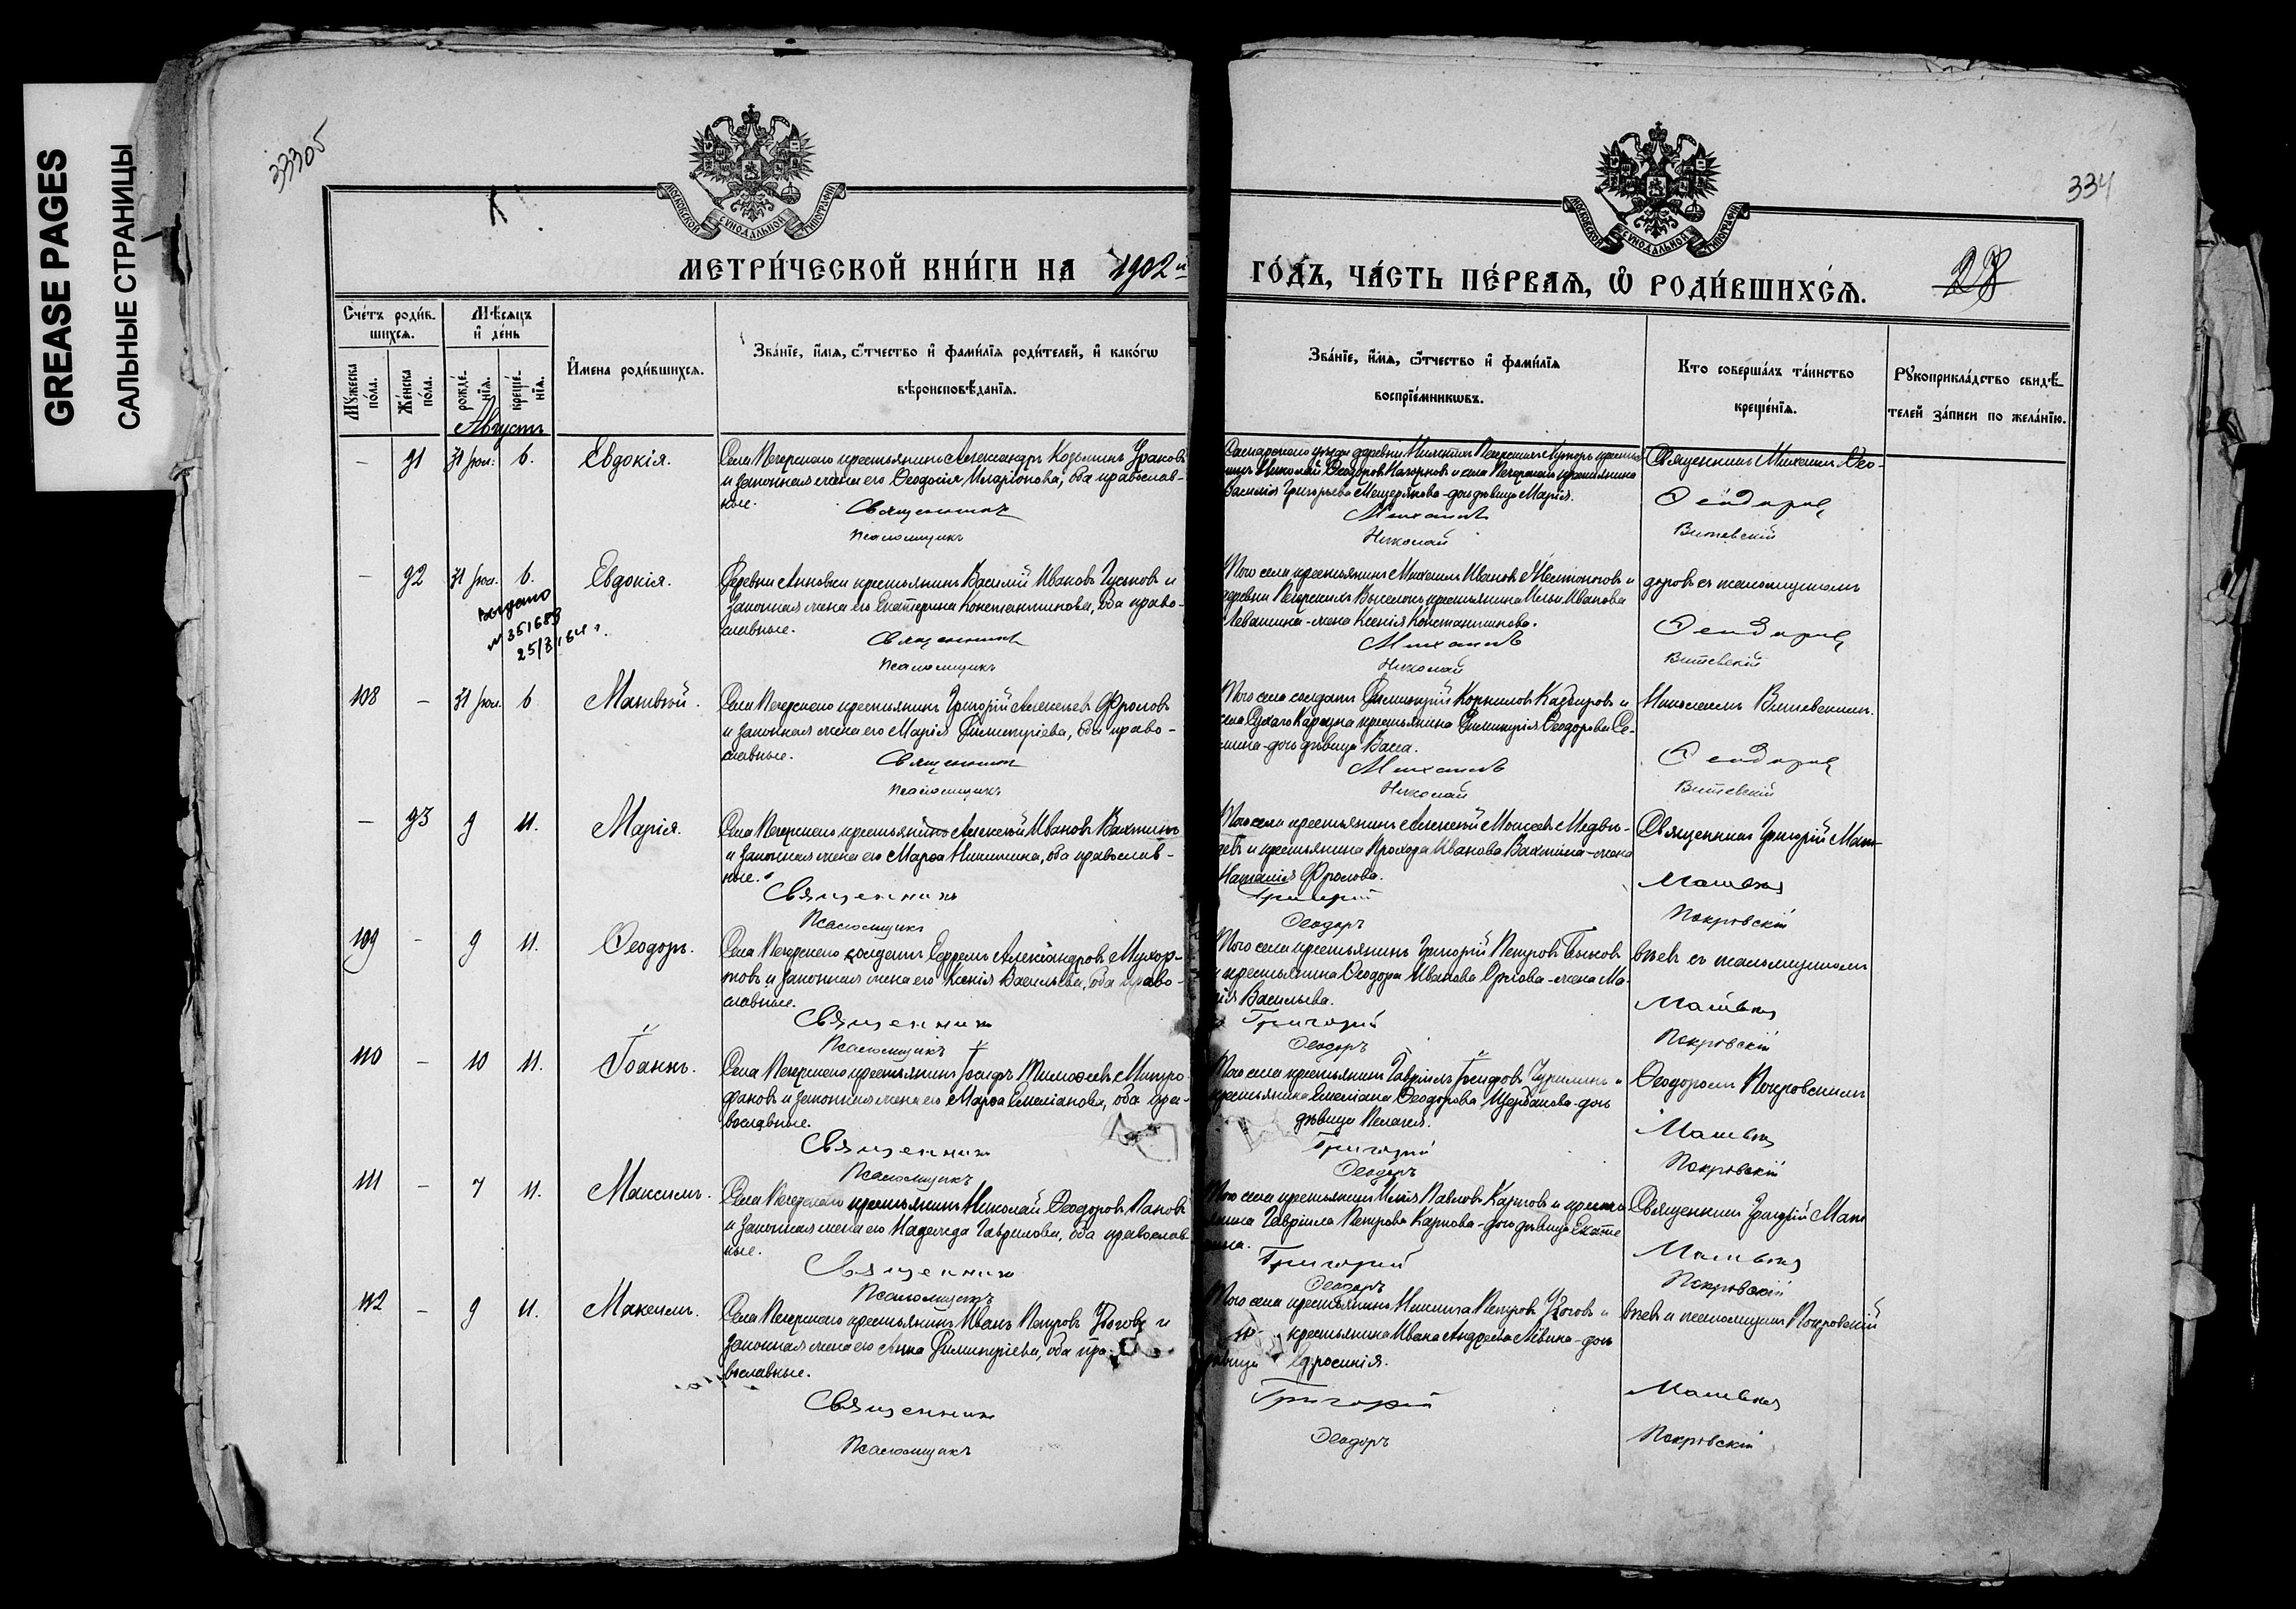 GREASE PAGES
САЛЬНЫЕ СТРАНИЦЫ
333об
334
МОСКОВСКОЙ СѴНОДАЛЬНОЙ ТИПОГРАФІИ
МОСКОВСКОЙ СѴНОДАЛЬНОЙ ТИПОГРАФІИ
МЕТРИ́ЧЕСКОЙ КНИ́ГИ НА 1902й
ГО́ДЪ, ЧА́СТЬ ПЕ́РВАЯ, Ѿ РОДИ́ВШИХСЯ.
28
Сче́тъ роди́в-
шихся.
Мѣсяцъ
и де́нь
Му́жеска по́ла.
Же́нска по́ла.
рожде́-нія.
креще́-нія.
И́мена роди́вшихся.
Зва́ніе, и́мя, ѻ́тчество и фами́лія роди́телей, и како́гѡ
вѣроисповѣ́данія.
Зва́ніе, и́мя, ѻ́тчество и фами́лія
воспріе́мникѡвъ.
Кто соверша́лъ та́инство
креще́нія.
Рукоприкла́дство свидѣ́-
телей за́писи по жела́нію.
Августъ
— 91 31 Іюл. 6. Евдокія.
Села Печерскаго крестьянинъ Александръ Козьминъ Ураковъ
и законная жена его Ѳеодосія Иларіонова, оба православ-
ные.
Священникъ
Псаломщикъ
Самарскаго уѣзда деревни Печерскій Хуторъ
Николай Ѳеодоровъ Нагорновъ и села Печерскаго крестьянина
Василія Григорьева Мещерякова - дочь дѣвица Марія.
Михаилъ
Николай
Священникъ Михаилъ Ѳео-
Ѳеодоровъ
Витевскій
— 92 31 Іюл. 6. Евдокія.
Выдано
№ 351683
25/3/64 г.
Деревни Анновки крестьянинъ Василій Ивановъ Гуськовъ и
законная жена его Екатерина Константинова, оба право-
славные.
Священникъ
Псаломщикъ
Того села крестьянинъ Михаилъ Ивановъ и
деревни Печерскихъ Выселокъ крестьянина Ильи Иванова
Левашина - жена Ксенія Константинова.
Михаилъ
Николай
доровъ съ псаломщикомъ
Ѳеодоровъ
Витевскій
108 — 31 Іюл. 6 Матвѣй.
Села Печерскаго крестьянинъ Григорій Алексѣевъ Фроловъ
и законная жена его Марія Димитріева, оба право-
славные.
Священникъ
Псаломщикъ
Того села солдатъ Димитрій Корниловъ и
села крестьянина Димитрія Ѳеодорова Се-
мина - дочь дѣвица Васса.
Михаилъ
Николай
Николаемъ Витевскимъ.
Ѳеодоровъ
Витевскій
— 93 9 11. Марія.
Села Печерскаго крестьянинъ Алексѣй Ивановъ Вахтинъ
и законная жена его Марѳа Никитина, оба православ-
ные.
Священникъ
Псаломщикъ
Того села крестьянинъ Алексѣй Моисеевъ Медвѣ-
девъ и крестьянина Прохора Иванова Вахтина - жена
Наталія Фролова.
Григорій
Ѳеодоръ
Священникъ Григорій Мат-
Матвѣевъ
Покровскій
109 — 9 11. Ѳеодоръ.
Села Печерскаго солдатъ Ефремъ Александровъ Мухор-
товъ и законная жена его Ксенія Васильева, оба право-
славные.
Священникъ
Псаломщикъ
Того села крестьянинъ Григорій Петровъ Быковъ
и крестьянина Ѳеодора Иванова Орлова - жена Ма-
рія Васильева.
Григорій
Ѳеодоръ
вѣевъ съ псаломщикомъ
Матвѣевъ
Покровскій
110 — 10 11. Іоаннъ.
Села Печерскаго крестьянинъ Іосифъ Тимоѳеевъ Митро-
фановъ и законная жена его Марѳа Емеліанова, оба пра-
вославные.
Священникъ
Псаломщикъ
Того села крестьянинъ Гавріилъ Іосифовъ Чурилинъ и
крестьянина Емеліана Ѳеодорова Щербакова - дочь
дѣвица Пелагея.
Григорій
Ѳеодоръ
Ѳеодоромъ Покровскимъ
Матвѣевъ
Покровскій
111 — 7 11. Максимъ.
Села Печерскаго крестьянинъ Николай Ѳеодоровъ Пановъ
и законная жена его Надежда Гаврилова, оба православ-
ные.
Священникъ
Псаломщикъ
Того села крестьянинъ Илія Павловъ Карповъ и кресть-
янина Гавріила Петрова Карпова - дочь дѣвица Екате-
рина.
Григорій
Ѳеодоръ
Священникъ Григорій Мат
Матвѣевъ
Покровскій
112 — 9 11. Максимъ.
Села Печерскаго крестьянинъ Иванъ Петровъ и
законная жена его Анна Димитріева, оба пра-
вославные.
Священникъ
Псаломщикъ
Того села крестьянинъ Никита Петровъ и
крестьянина Ивана Андреева Левина - дочь
дѣвица Ефросинія.
Григорій
Ѳеодоръ
вѣевъ и псаломщикъ Покровскій
Матвѣевъ
Покровскій